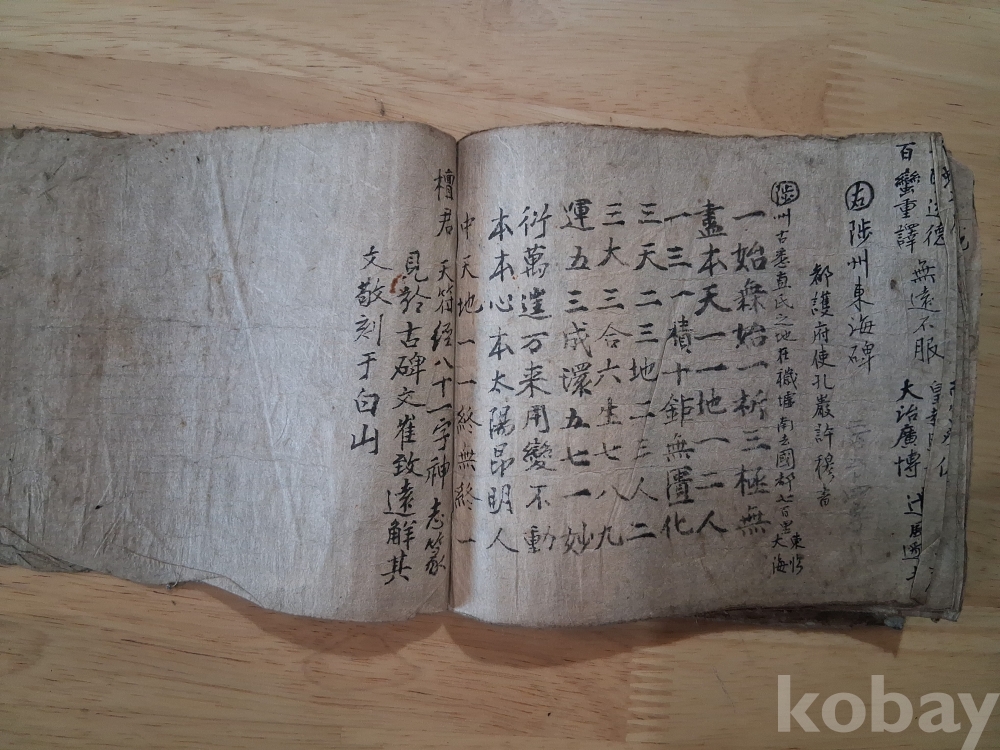 百蠻重譯 無遠不服
大治廣博
右 陟州東海碑
都護府使孔巖許穆書
陟州古悉直氏之地在穢墟南去國都七百里東臨大海
一始無始一析三極無
盡本天一一地一二人
一三一積十鉅無匱化
三天二三地二三人二
三大三合六生七八九
運五三成環五七一妙
衍萬遑万来用變不動
本本心本太陽昂明人
中天地一一終無終一
檀君 天符經八十一字神志篆
見於古碑文崔致遠解其
文敬刻于白山
kobay